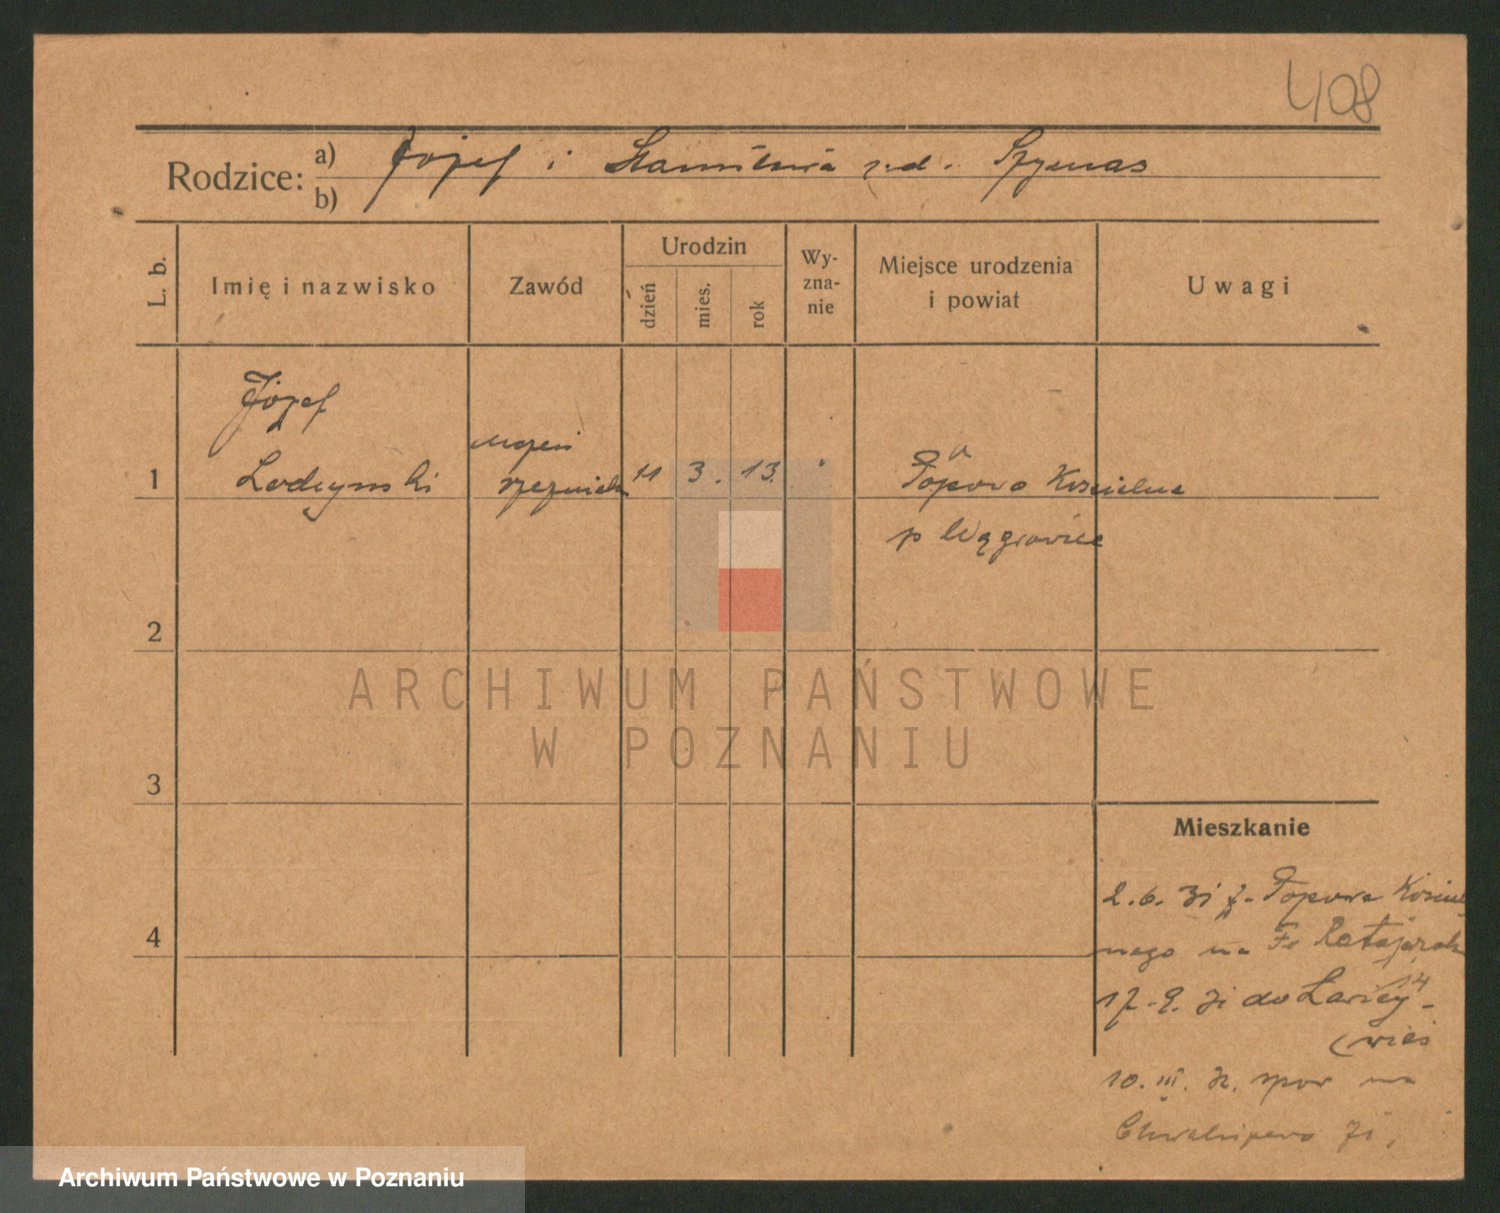 408
Rodzice: a) Józef i Stanisława z d. Szymas
b)
L. b.
Imię i nazwisko
Zawód
Urodzin
dzień
mies.
rok
Wy-
zna-
nie
Miejsce urodzenia
i powiat
Uwagi
Józef
1 uczeń
rzeźnicki 11 3. 13. Popowo Kościelne
p Wągrowiec
2
ARCHIWUM PAŃSTWOWE
W POZNANIU
3
Mieszkanie
2.6. 31 z Popowa Kościel
4 nego na Fr Ratajczak
14
17.9. 31 do
wieś
10. III. 32. spow na
31.
Archiwum Państwowe w Poznaniu